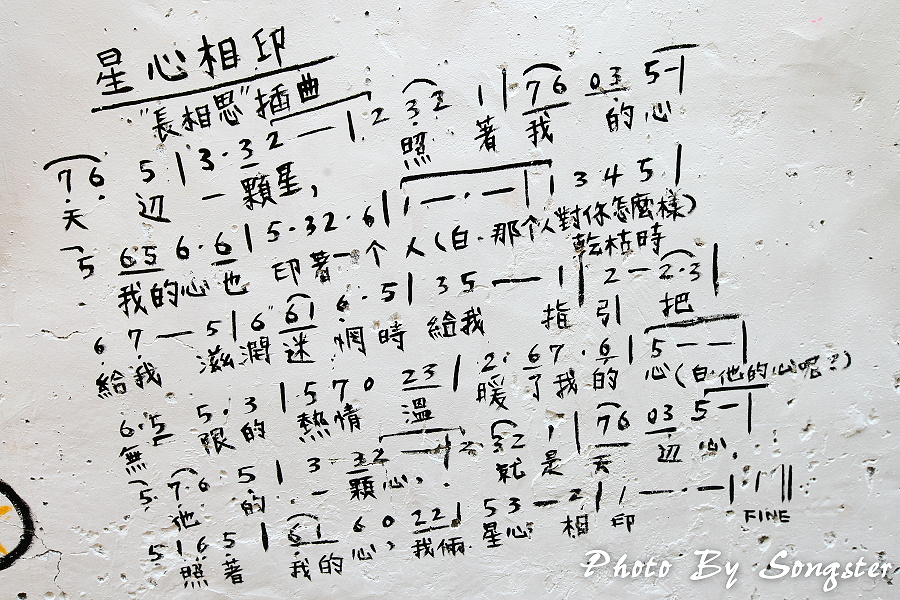 星心相印
"長相思"插曲
7 6 5 | 3 · 3 2 — | 2 3 2 1 | 7 6 0 3 5 — |
天 边 一顆星, 照 著 我 的心
5 6 5 6 · 6 | 5 · 3 2 · 6 | 1 — · — | 1 3 4 5 |
我的心也 印著一个人(白.那个人對你怎麼樣)
乾枯時
6 7 — 5 | 6 6 1 6 · 5 | 3 5 — 1 | 2 — 2 · 3 |
給我 滋潤 迷惘時 給我 指引 把
6 · 5 5 · 3 | 5 7 0 2 3 | 2 · 6 7 · 6 | 5 — — |
無 限的 熱情 溫 暖了我的心(白他的心呢?)
5 7 · 6 5 | 3 3 2 — | 2 3 2 1 | 7 6 0 3 5 — |
他 的 一 顆心, 就是 天 边 心.
5 1 6 5 | 6 1 6 0 2 2 | 5 3 — 2 | 1 — · — | 1 ||
照著 我的心, 我倆 星心 相印
FINE
Photo By Songster